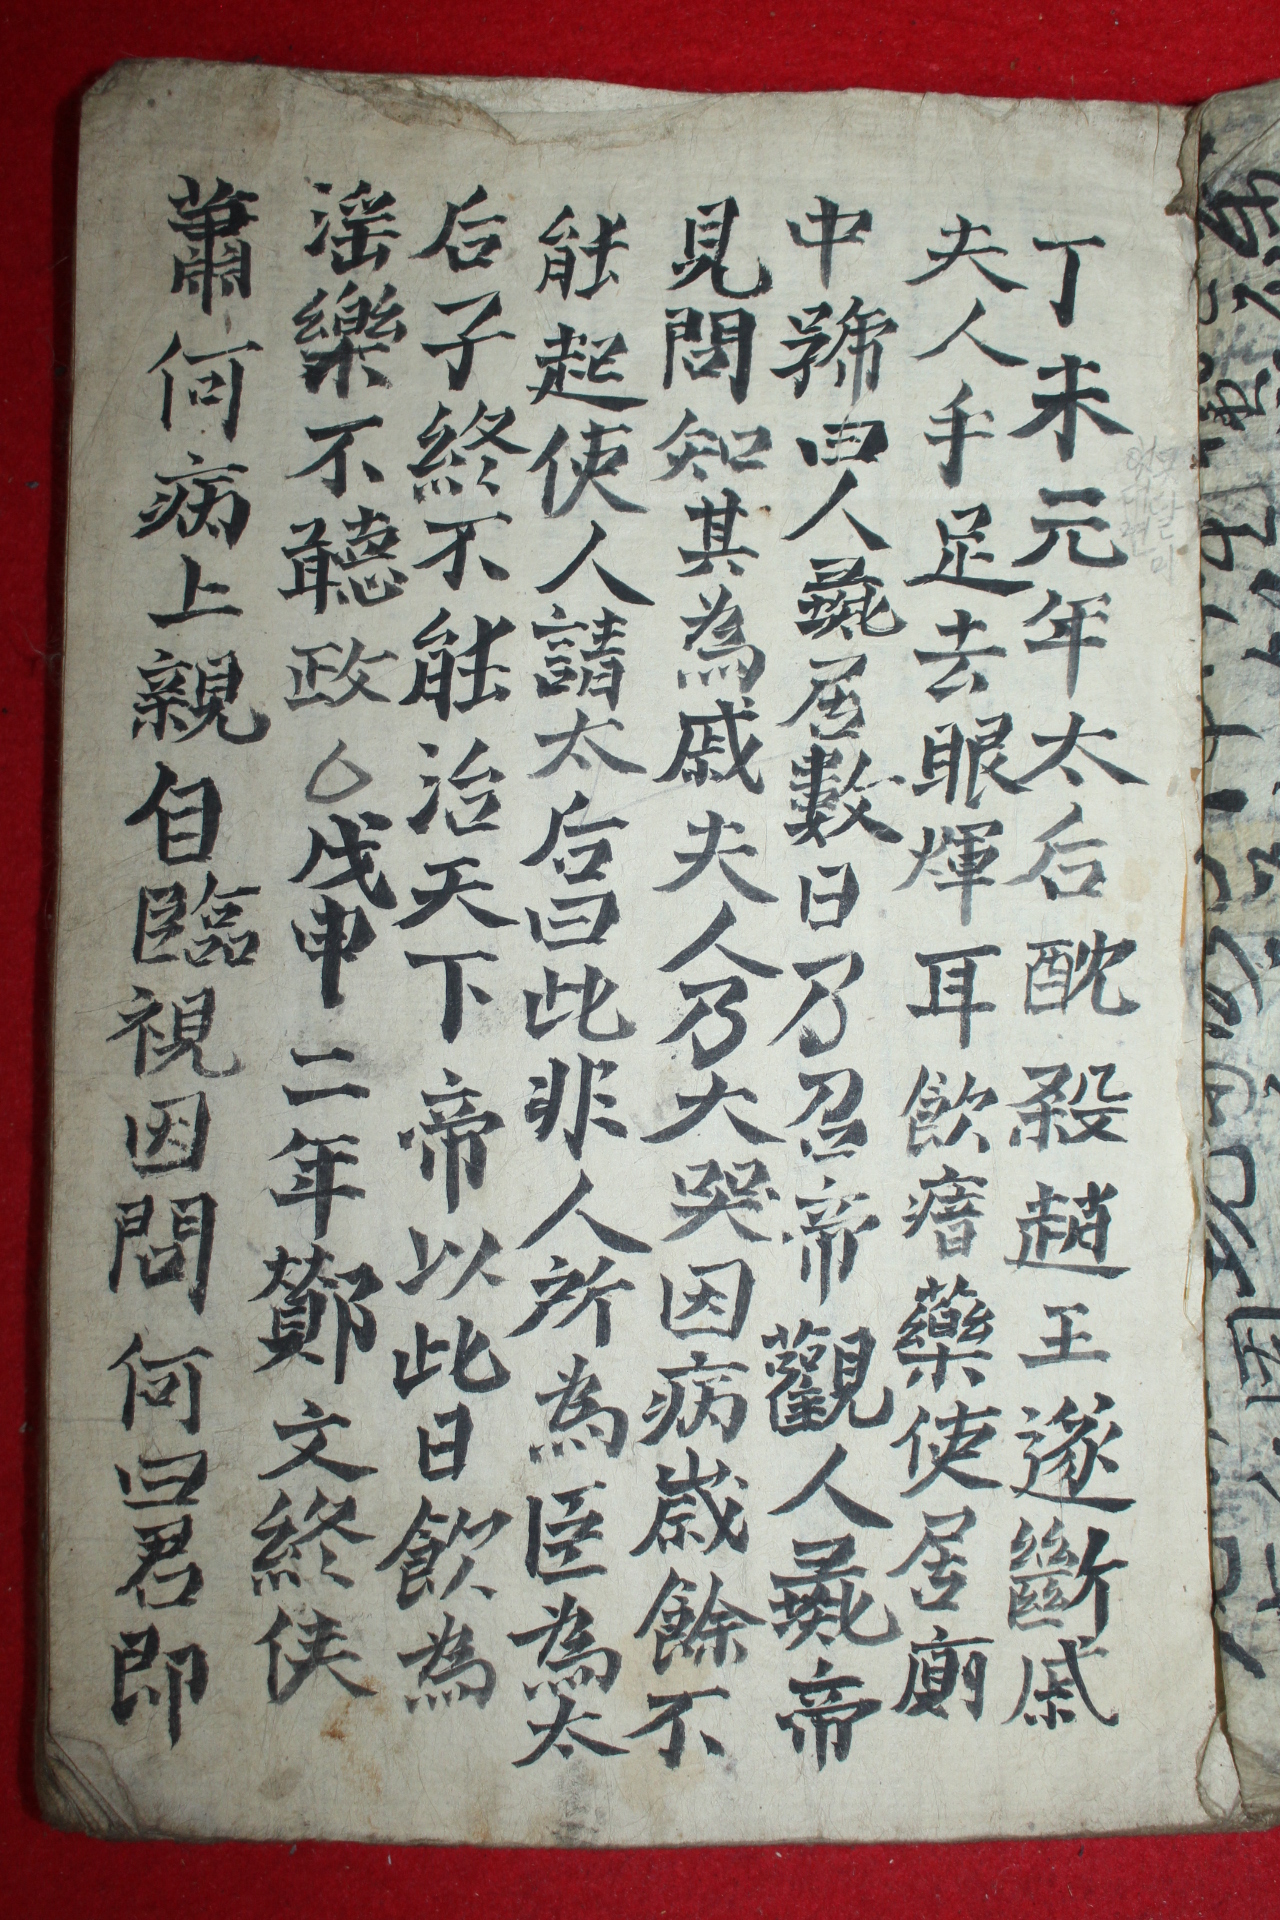 丁未元年太后酖殺趙王遂斷戚
夫人手足去眼煇耳飮瘖藥使居廁
中號曰人彘居數日乃召帝觀人彘帝
見問知其為戚夫人乃大哭因病歲餘不
能起使人請太后曰此非人所為臣為太
后子終不能治天下帝以此日飮為
淫樂不聽政○戊申二年酇文終侯
蕭何病上親自臨視因問何曰君即